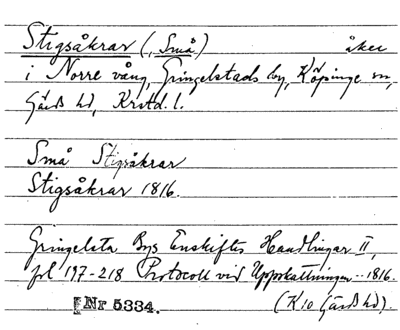 Stigsåkrar (, Små) åker
i Norre vång, Gringelstads by, Köpinge sn,
Gärds hd, Krstd. l.
Små Stigsåkrar
Stigsåkrar 1816.
Gringelsta Bys Enskiftes Handlingar II,
fol 197-218 Protocoll vid Uppskattningen -- 1816.
Nr 5334. (K10 Gärds hd).